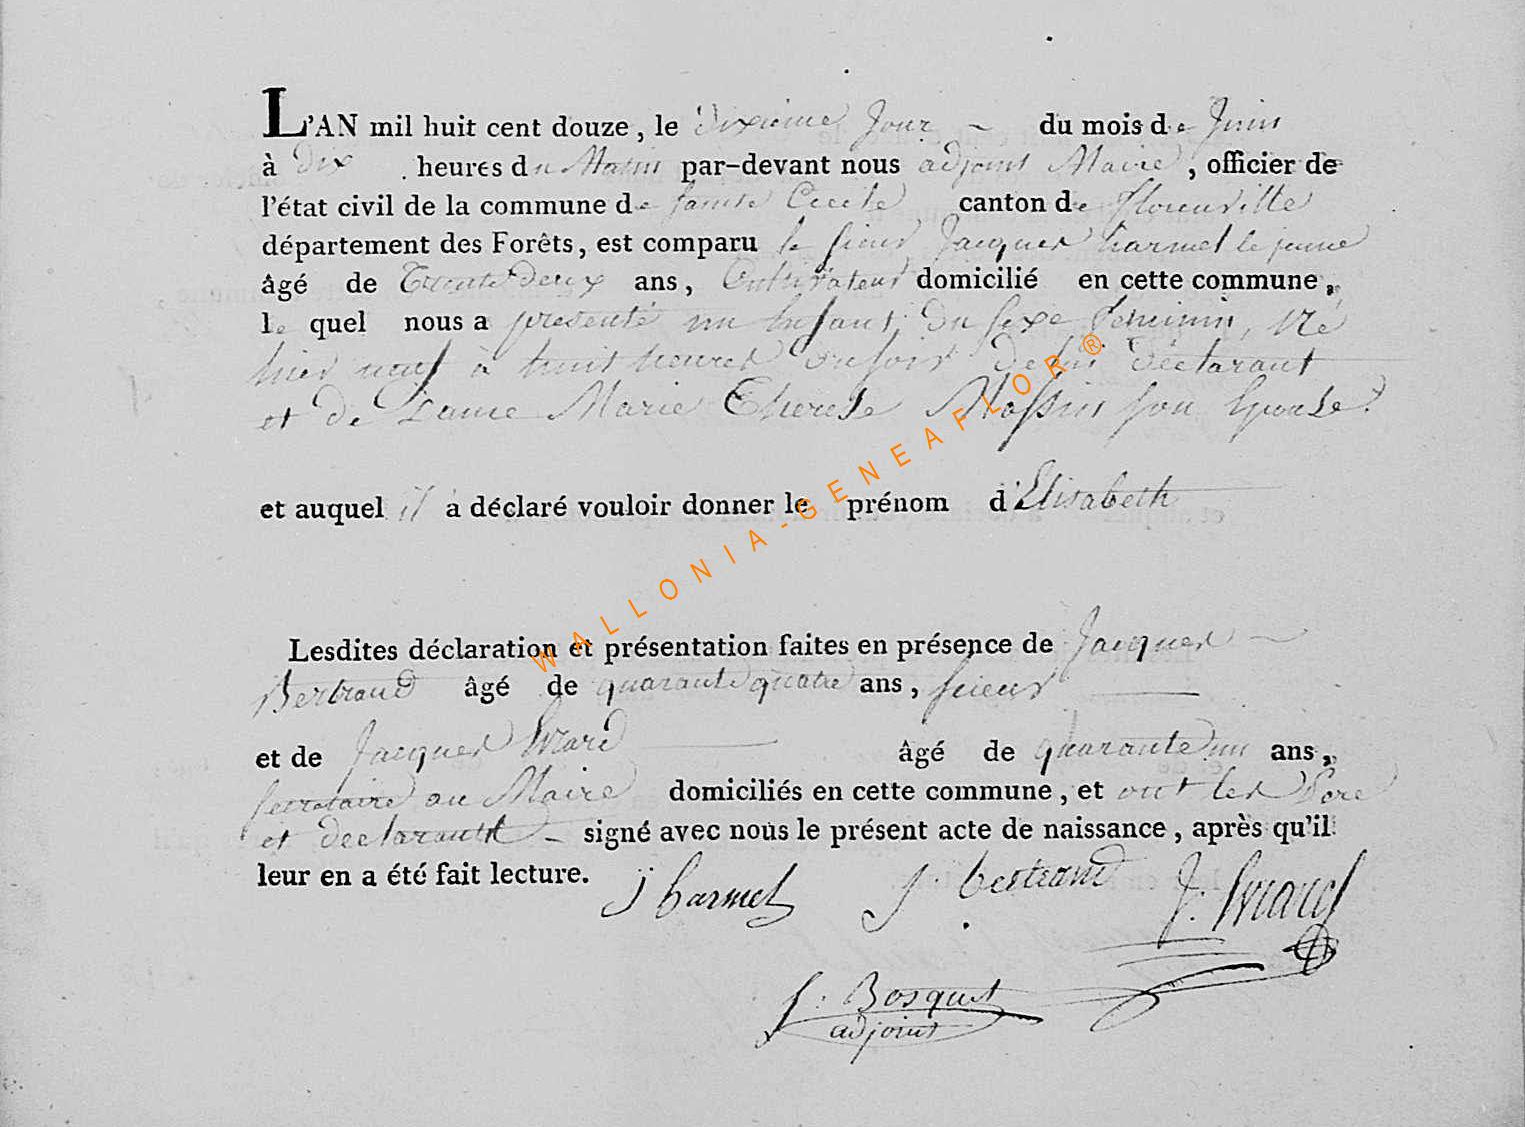 L'AN mil huit cent douze, le dixieme Jour - du mois de Juin
à dix heures du Matin par-devant nous adjoint Maire, officier de
l'état civil de la commune de sainte Cecile canton de florenville
département des Forêts, est comparu le sieur Jacques harmel le jeune
âgé de trente deux ans, Cultivateur domicilié en cette commune,
le quel nous a presenté un Enfant du sexe feminin, Né
hier neuf à huit heures du soir de lui declarant
et de Dame Marie Therese Massin son Epouse.
et auquel il a déclaré vouloir donner le prénom d'Elisabeth
Lesdites déclaration et présentation faites en présence de Jacques
Bertrand âgé de quarante quatre ans, scieur
et de Jacques âgé de quarante un ans,
secretaire au Maire domiciliés en cette commune, et ont les Pere
et declarant - signé avec nous le présent acte de naissance, après qu'il
leur en a été fait lecture.
J harmel J. bertrand J.
J. Bosquet
adjoint
WALLONIA-GENEAFLOR ®